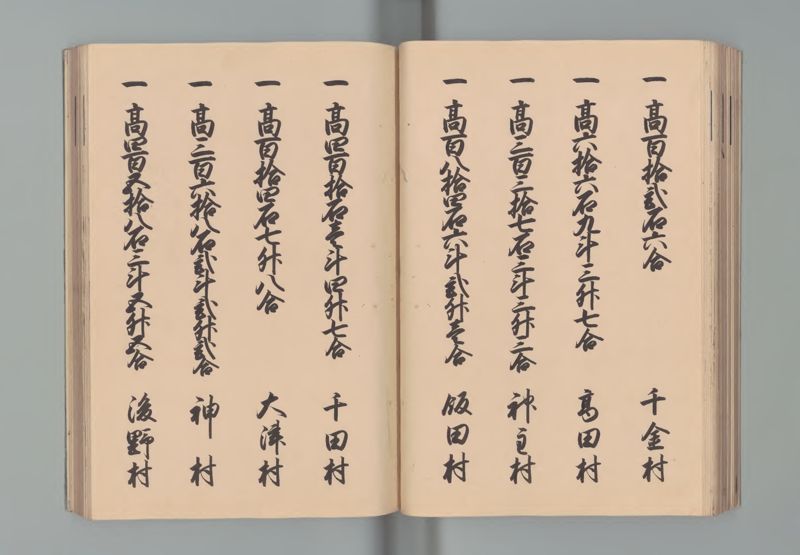 一 高百拾弐石六合 千金村
一 高六拾六石九斗三升七合 高田村
一 高三百三拾七石三斗三升三合 神主村
一 高百八拾四石六斗弐升壱合 飯田村
一 高四百拾石壱斗四升七合 千田村
一 高百拾四石七升八合 大津村
一 高三百六拾八石弐斗弐升弐合 神村
一 高四百五拾八石三斗五升五合 後野村